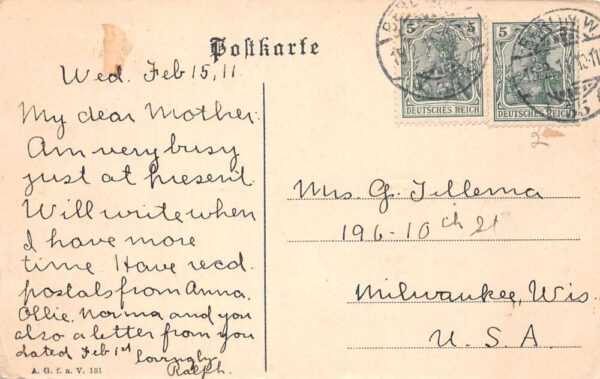 Postkarte
BERLIN W
5 5
DEUTSCHES REICH
5
DEUTSCHES REICH
BERLIN W
Wed. Feb 15, 11.
My dear Mother:
Am very busy
just at present.
Will write when
I have more
time. Have recd.
postals from Anna,
Ollie, Norma and you
also a letter from you
dated Feb 1st
lovingly
Ralph.
Mrs. G. Tillema
196-10th St
Milwaukee, Wis.
U. S. A.
2
A. G. f. a. V. 101